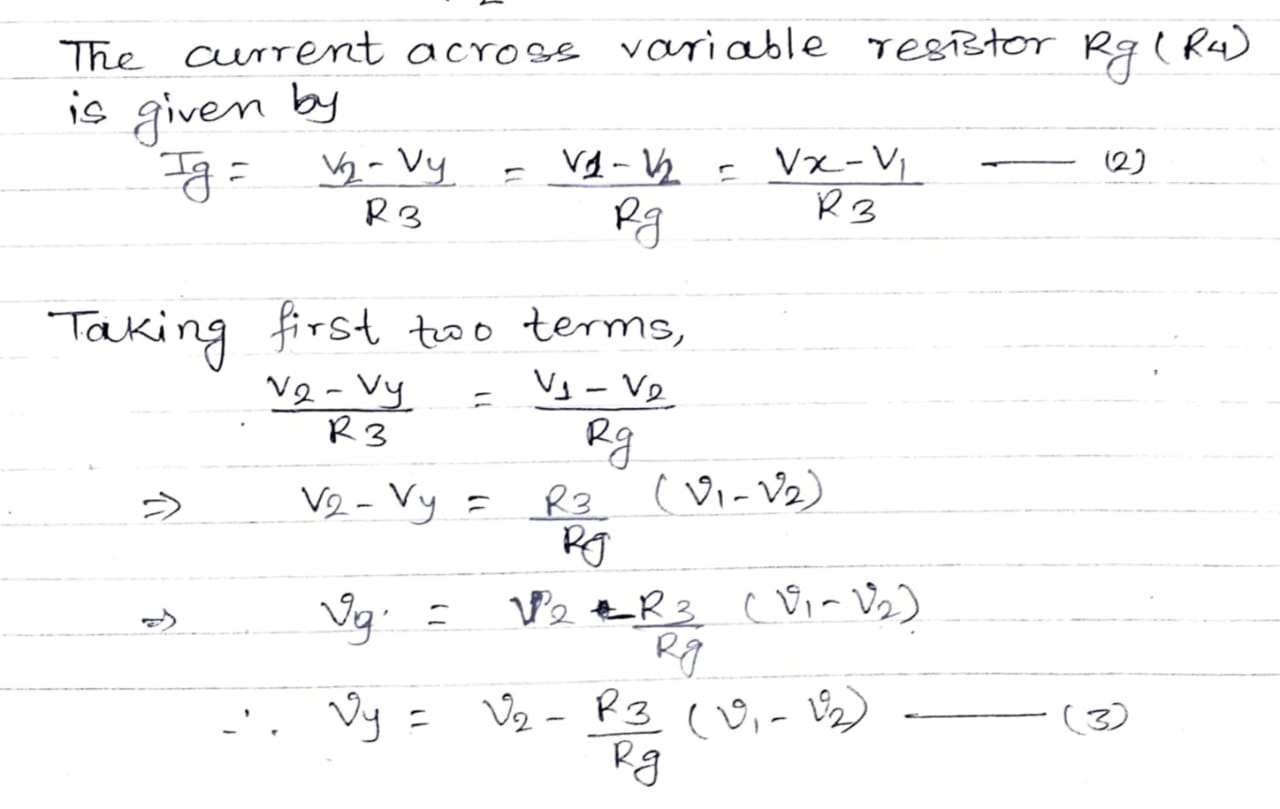 The current across variable resistor Rg (R4)
is given by
Ig = V2 - Vy / R3 = V1 - V2 / Rg = Vx - V1 / R3 —— (2)
Taking first two terms,
V2 - Vy / R3 = V1 - V2 / Rg
⇒ V2 - Vy = R3 / Rg (V1 - V2)
⇒ Vg = V2 - R3 / Rg (V1 - V2)
∴ Vy = V2 - R3 / Rg (V1 - V2) —— (3)